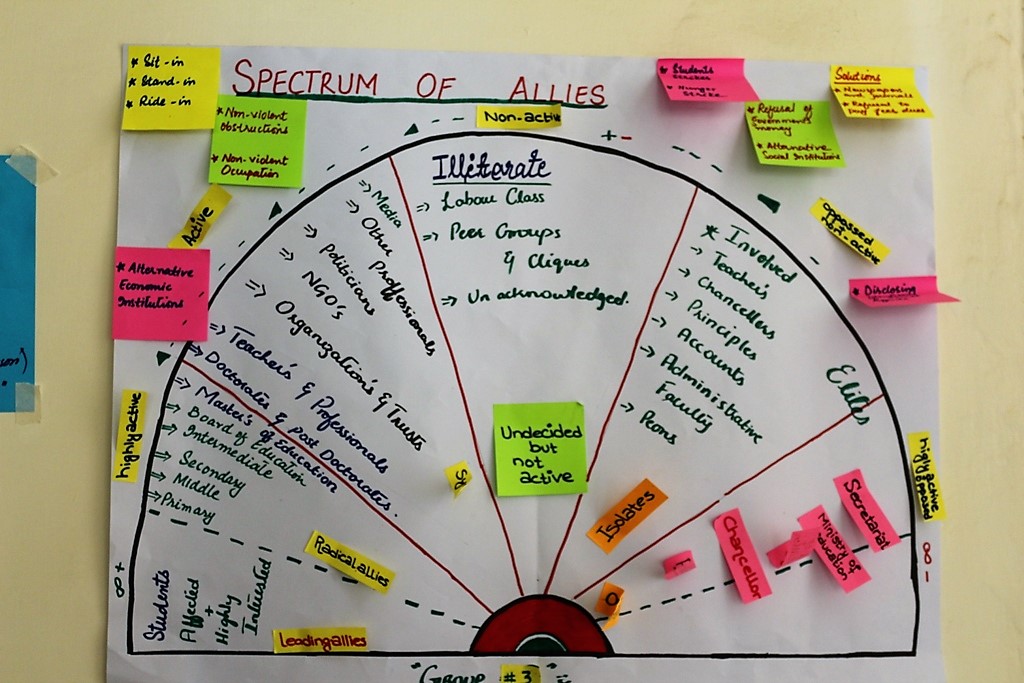 * Sit-in
* Stand-in
* Ride-in
SPECTRUM OF ALLIES
* Non-violent
obstructions
* Non-violent
Occupation
Non-active
+ -
* Students
* Hunger
* Refusal of
Government's
money
* Alternative
Social Institutions
Solutions
* Newspapers
and Journals
* Refusal to
pay
dues
Active
oppossed
Non-active
* Disclosing
* Alternative
Economic
Institutions
Illiterate
=> Labour Class
=> Peer Groups
& Cliques
=> Unacknowledged.
=> Media
=> Other Proffessionals
=> Politicians
=> NGO's
=> Organization's & Trusts
=> Teacher's & Professionals
=> Doctorates & Post Doctorates.
=> Master's of Education
=> Board of Education
=> Intermediate
=> Secondary
=> Middle
=> Primary
* Involved
-> Teachers
-> Chancellers
-> Principles
-> Accounts
-> Administrative
Faculty
-> Peons
Elites
Undecided
but
not
active
Isolates
highly active
Highly active
opposed
Secretariat
Ministry of
education
Chancellor
Radical allies
Students
Affected
+
Highly
Interested
Leading allies
∞ +
∞ -
O
"Group #3"